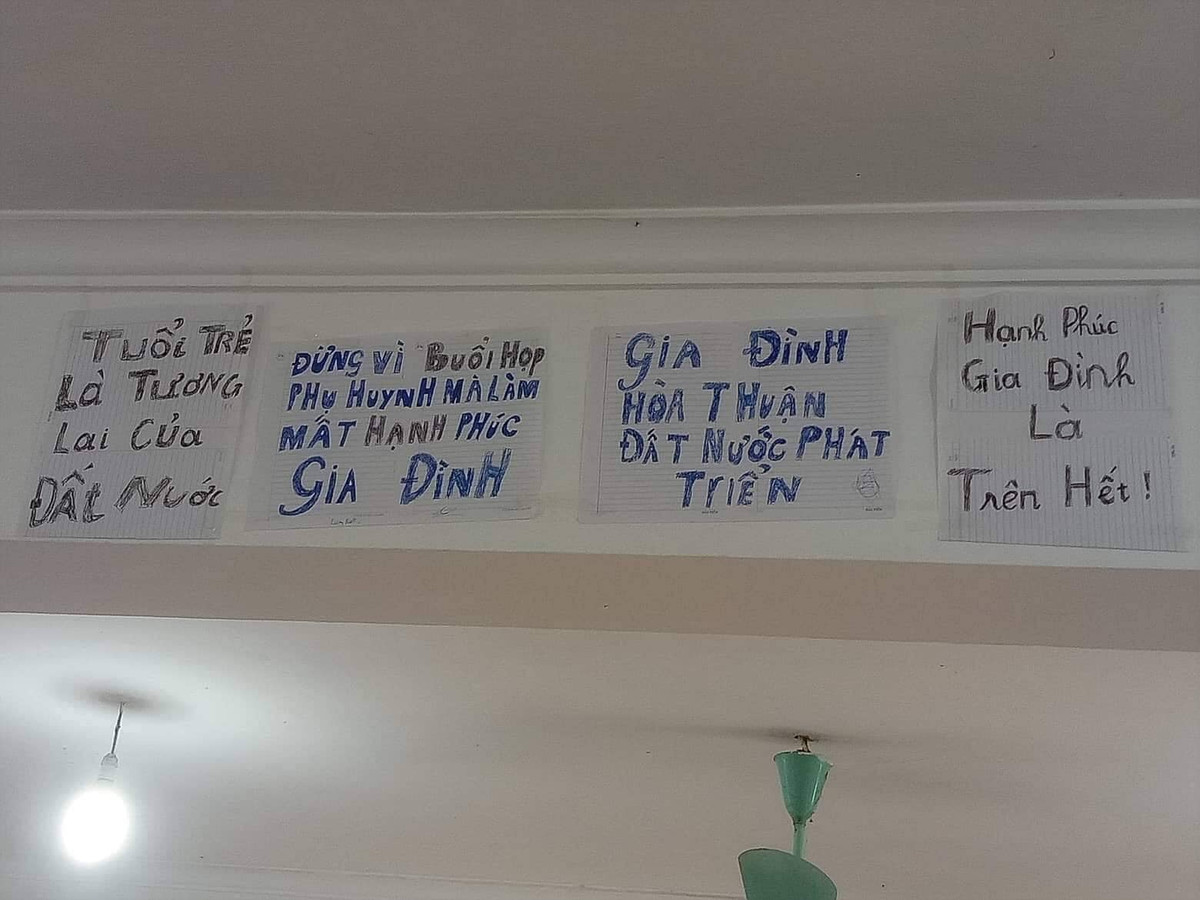 TUỔI TRẺ
LÀ TƯƠNG
Lai CỦa
ĐẤt NƯớc
ĐỪNG VÌ BUỔI HỌP
PHỤ HUYNH MÀ LÀM
MẤT HẠNH PHÚC
GIA ĐÌNH
GIA ĐÌNH
HÒA THUẬN
ĐẤT NƯỚC PHÁT
TRIỂN
Hạnh Phúc
Gia Đình
Là
Trên Hết!